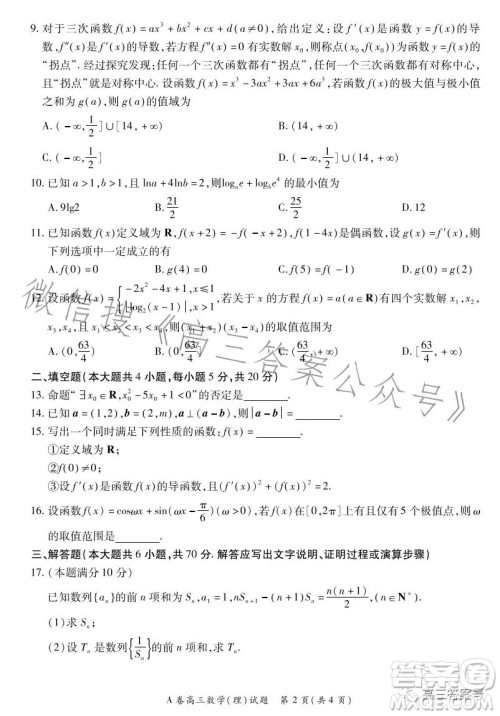 9. 对于三次函数 f(x)=ax³+bx²+cx+d(a≠0),给出定义:设 f′(x)是函数 y=f(x)的导
数,f″(x)是 f′(x)的导数,若方程 f″(x)=0 有实数解 x₀,则称点(x₀,f(x₀))为函数 y=f(x)的
“拐点”. 经过探究发现:任何一个三次函数都有“拐点”,任何一个三次函数都有对称中心,
且“拐点”就是对称中心. 设函数 f(x)=x³-3ax²+3ax+6a³,若函数 f(x)的极大值与极小值
之和为 g(a),则 g(a)的值域为
A. (-∞,1/2]∪[14,+∞) B. (-∞,1/2]∪(14,+∞)
C. (-∞,1/2] D. [14,+∞)
10. 已知 a>1,b>1,且 lna+4lnb=2,则 logₐe+log_b e⁴ 的最小值为
A. 9lg2 B. 21/2 C. 25/2 D. 12
11. 已知函数 f(x)定义域为 R,f(x+2)=-f(-x+2),f(1-4x)是偶函数,设 g(x)=f′(x),则
下列选项中一定成立的有
A. f(0)=0 B. g(4)=0 C. f(1)=0 D. g(0)=g(2)
12. 设函数 f(x)={-2x²-4x+1,x≤1 |log₂(x-1)|,x>1,若关于 x 的方程 f(x)=a(a∈R)有四个实数解 x₁,x₂,
x₃,x₄,且 x₁<x₂<x₃<x₄,则(x₁+x₂)(x₃-x₄)的取值范围为
A. (0,63/4] B. (0,63/4) C. (63/4,+∞) D. [63/4,+∞)
二、填空题(本大题共 4 小题,每小题 5 分,共 20 分)
13. 命题“∃x₀∈R,x₀²-5x₀+1<0”的否定是
14. 已知 a=(1,2),b=(2,m),a⊥(a-b),则|a-b|= .
15. 写出一个同时满足下列性质的函数:f(x)= .
①定义域为 R;
②f(0)≠0;
③设 f′(x)是函数 f(x)的导函数,且(f′(x))²+(f(x))²=2.
16. 设函数 f(x)=cosωx+sin(ωx-π/6)(ω>0),若 f(x)在[0,2π]上有且仅有 5 个极值点,则 ω
的取值范围是 .
三、解答题(本大题共 6 小题,共 70 分. 解答应写出文字说明、证明过程或演算步骤)
17. (本题满分 10 分)
已知数列{aₙ}的前 n 项和为 Sₙ,且满足 a₁=1,nSₙ₊₁-(n+1)Sₙ=n(n+1)/2,n∈N*
(1)求 aₙ;
(2)设 Tₙ 是数列{1/Sₙ}的前 n 项和,求 Tₙ.
A 卷高三数学(理)试题 第 2 页(共 4 页)
微信搜《高三答案公众号》
高三答案号